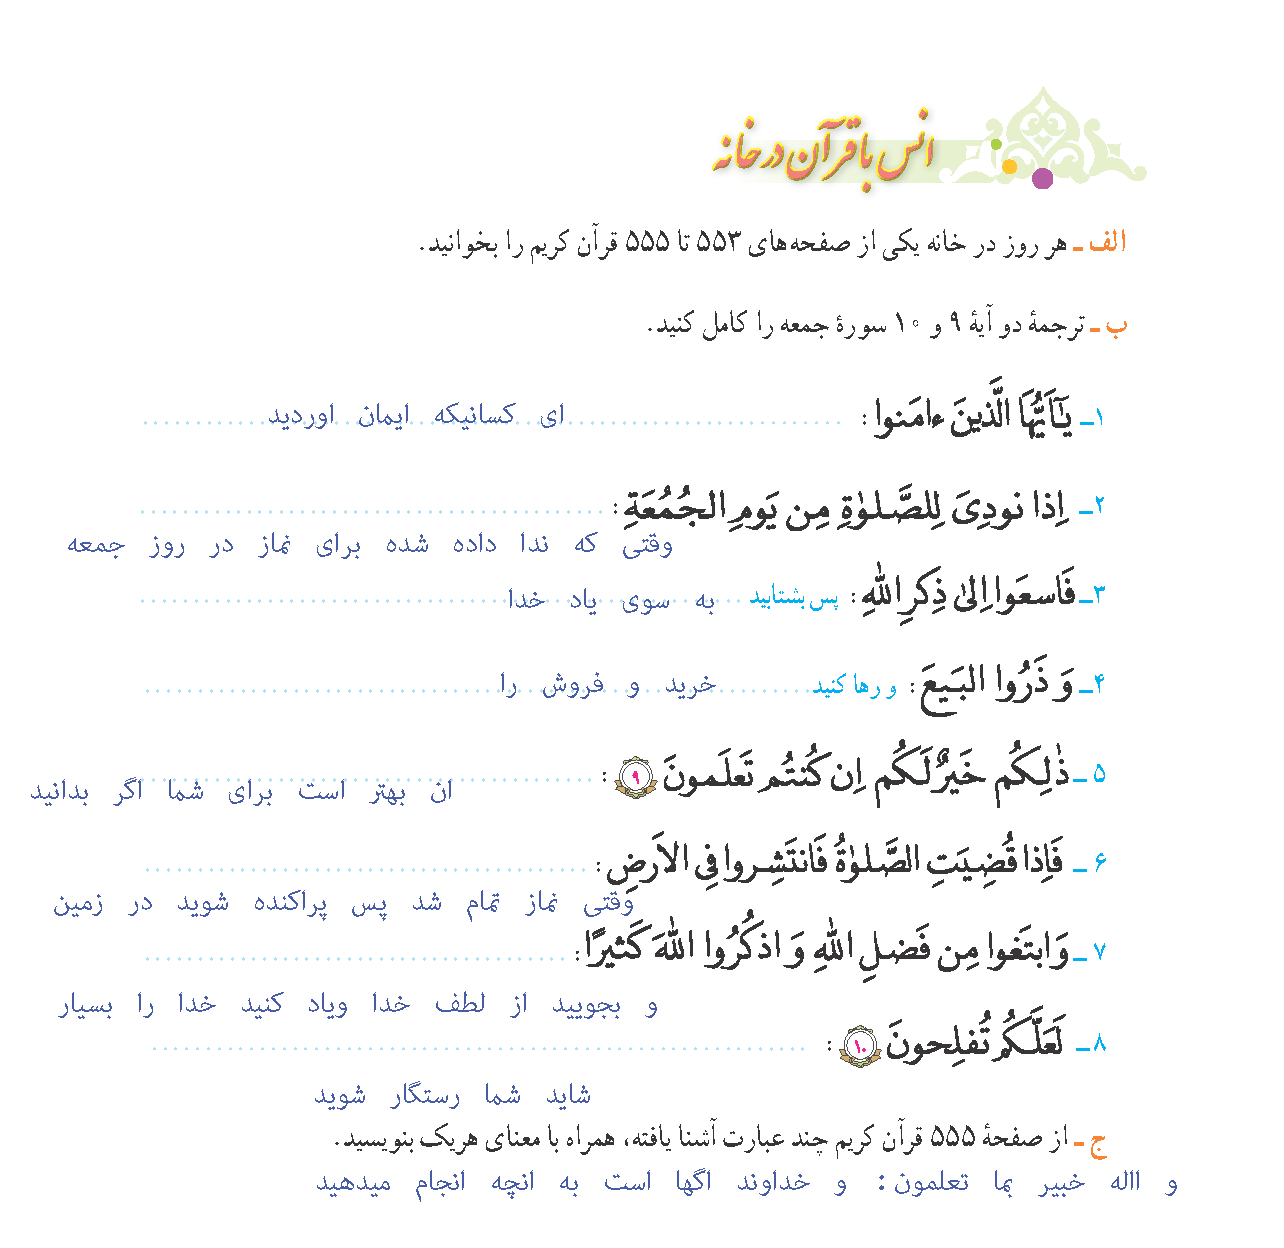 انس با قرآن در خانه
الف ـ هر روز در خانه یکی از صفحه‌های ۵۵۳ تا ۵۵۵ قرآن کریم را بخوانید.
ب ـ ترجمهٔ دو آیهٔ ۹ و ۱۰ سورهٔ جمعه را کامل کنید.
۱ـ یٰٓاَیُّهَا الَّذینَ ءامَنوا : ای کسانیکه ایمان اوردید
۲ـ اِذا نودِیَ لِلصَّلوٰةِ مِن یَومِ الجُمُعَةِ :
وقتی که ندا داده شده برای نماز در روز جمعه
۳ـ فَاسعَوا اِلیٰ ذِکرِ اللّٰهِ : پس بشتابید به سوی یاد خدا
۴ـ وَ ذَرُوا البَیعَ : و رها کنید خرید و فروش را
۵ ـ ذٰلِکُم خَیرٌ لَکُم اِن کُنتُم تَعلَمونَ ۹ :
ان بهتر است برای شما اگر بدانید
۶ ـ فَاِذا قُضِیَتِ الصَّلوٰةُ فَانتَشِروا فِی الاَرضِ :
وقتی نماز تمام شد پس پراکنده شوید در زمین
۷ ـ وَ ابتَغوا مِن فَضلِ اللّٰهِ وَ اذکُرُوا اللّٰهَ کَثیرًا :
و بجویید از لطف خدا ویاد کنید خدا را بسیار
۸ ـ لَعَلَّکُم تُفلِحونَ ۱۰ :
شاید شما رستگار شوید
ج ـ از صفحهٔ ۵۵۵ قرآن کریم چند عبارت آشنا یافته، همراه با معنای هریک بنویسید.
و االه خبیر بما تعلمون : و خداوند اگها است به انچه انجام میدهید